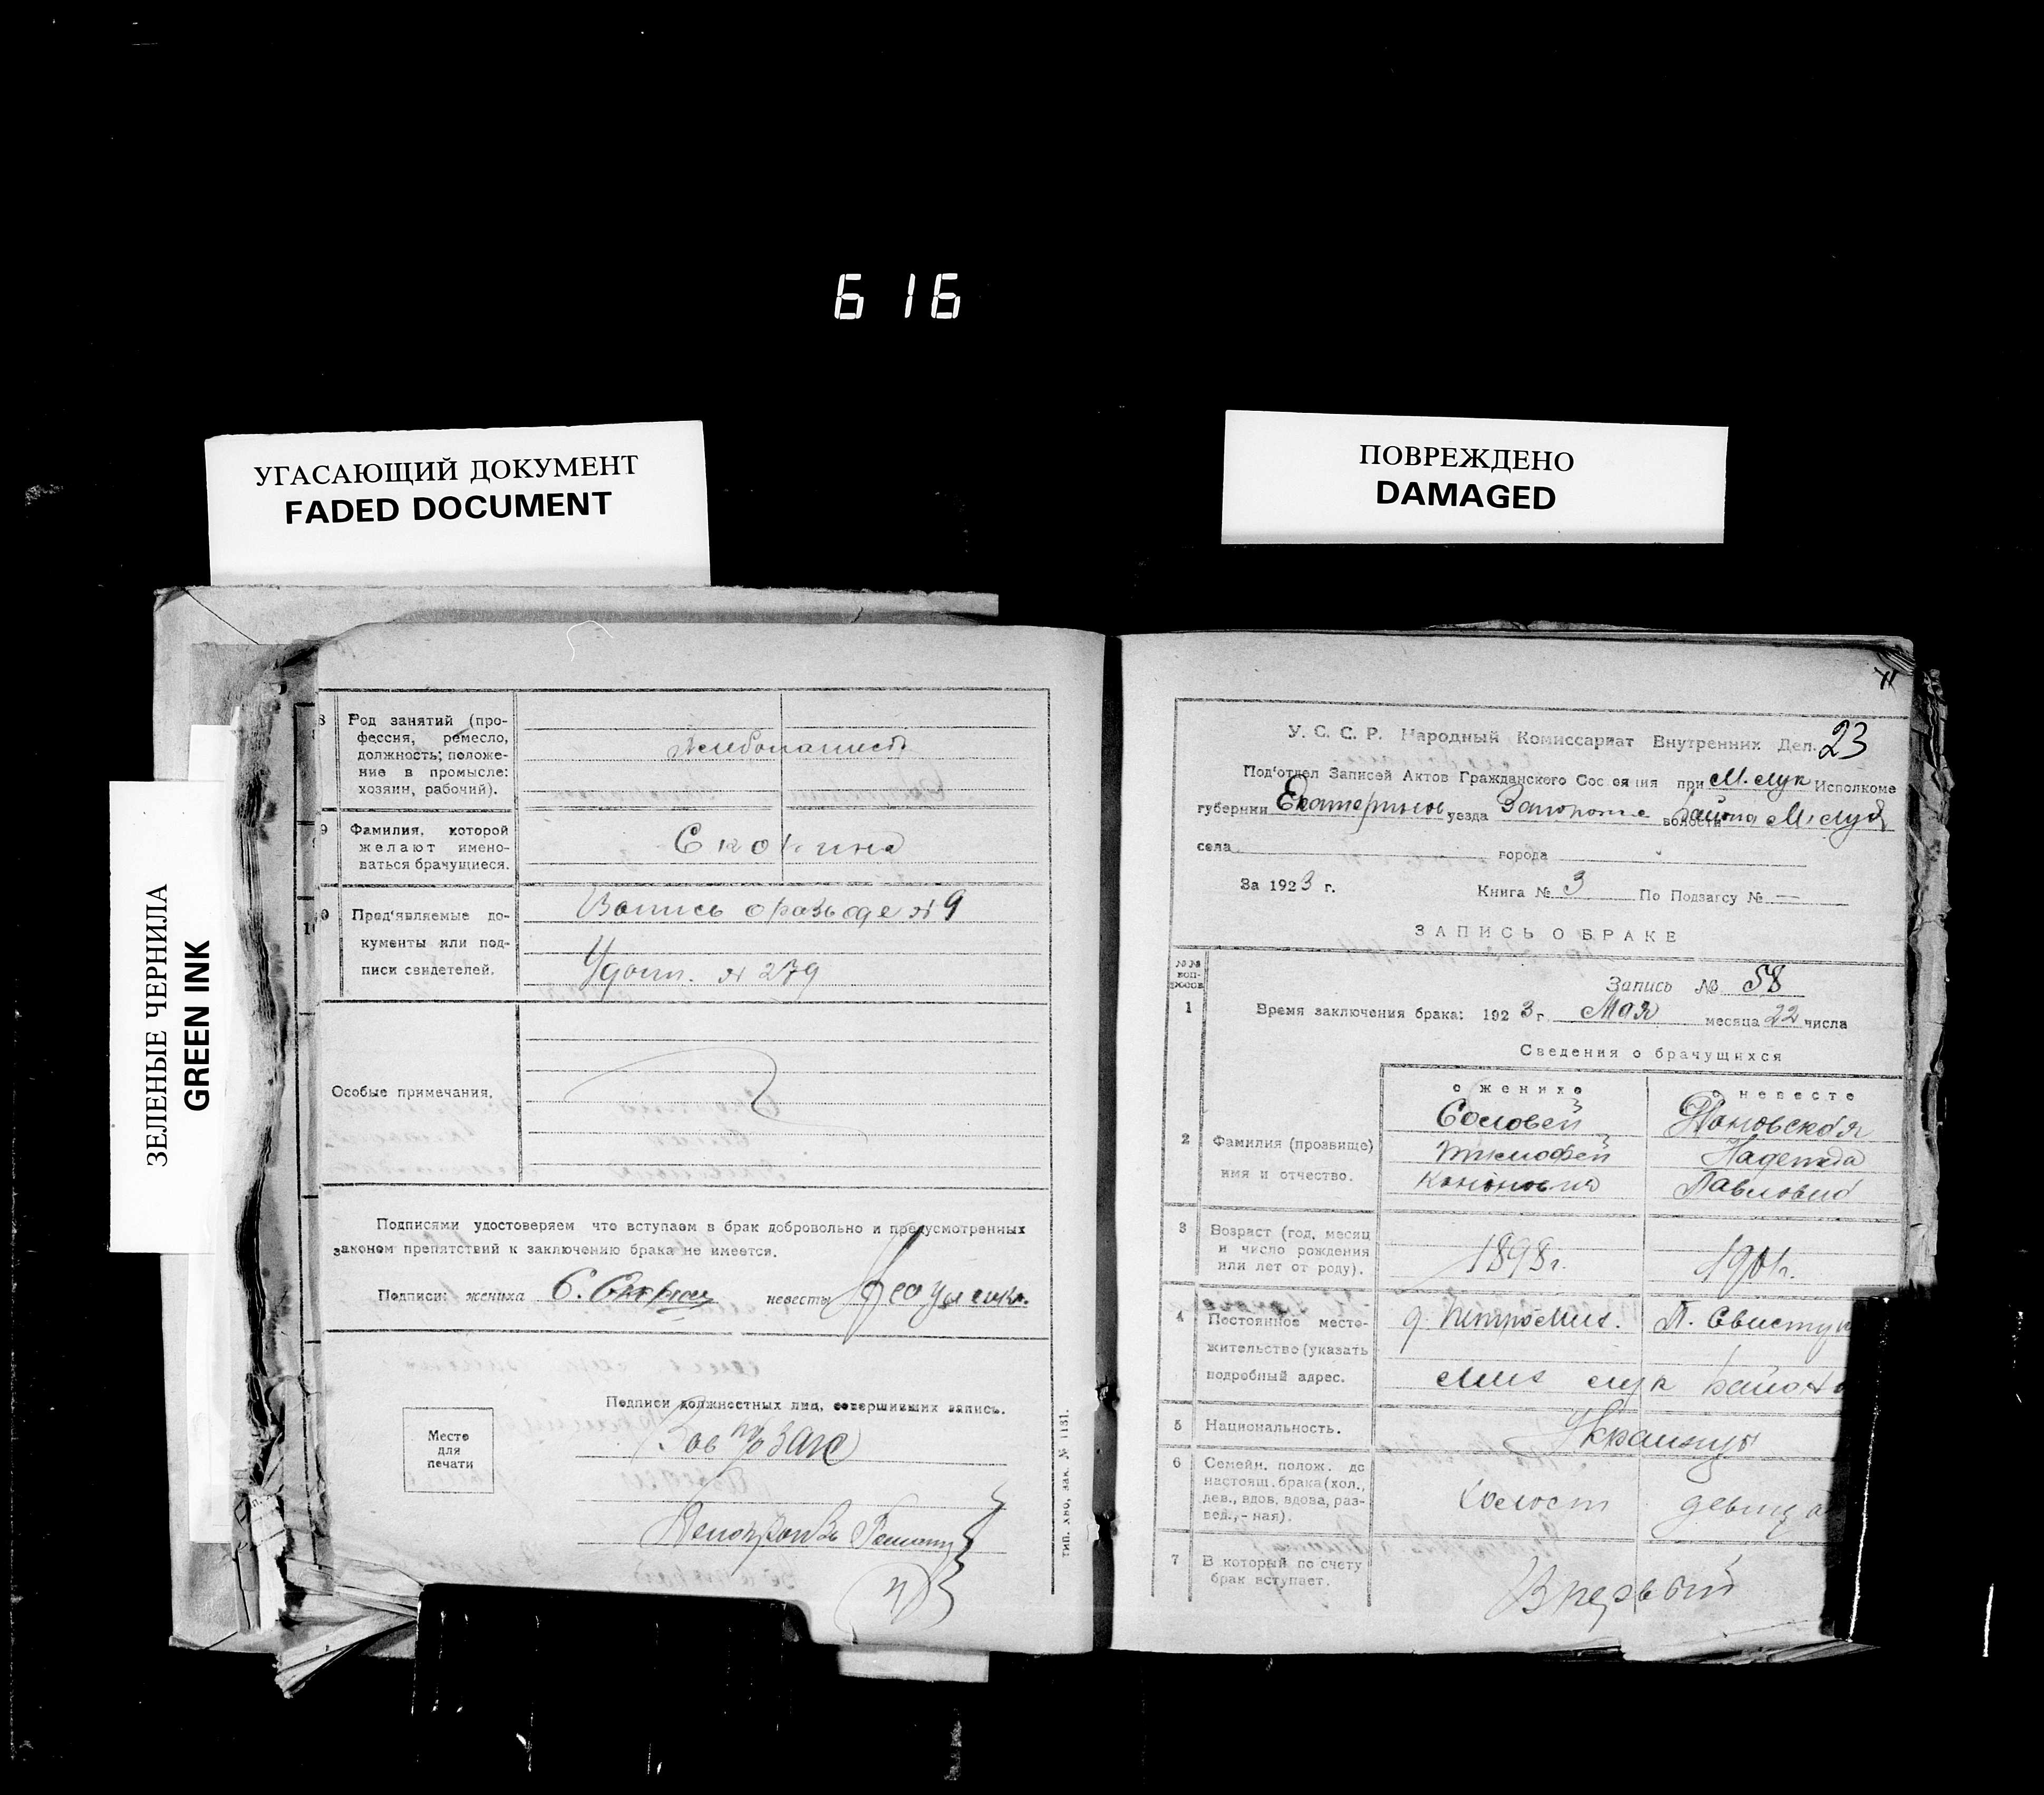 616
УГАСАЮЩИЙ ДОКУМЕНТ
FADED DOCUMENT
ПОВРЕЖДЕНО
DAMAGED
ЗЕЛЕНЫЕ ЧЕРНИЛА
GREEN INK
8 Род занятий (про-
фессия, ремесло,
должность; положе-
ние в промысле:
хозяин, рабочий).
9 Фамилия, которой
желают имено-
ваться брачущиеся.
Пред'являемые до-
кументы или под-
писи свидетелей.
Запись о разводе № 9
Удост. № 279
Особые примечания.
Подписями удостоверяем что вступаем в брак добровольно и предусмотренных
законом препятствий к заключению брака не имеется.
Подписи: жениха невесты
Подписи должностных лиц, совершивших запись.
Место
для
печати
Зав п/о Загс
тип. хво, зак. № 1131.
11
У. С. С. Р. Народный Комиссариат Внутренних Дел. 23
Под'отдел Записей Актов Гражданского Сос ояния при М. Лук Исполкоме
губернии Екатеринос уезда Запорож волости района М. Лук
села города
За 1923 г. Книга № 3 По Подзагсу № —
ЗАПИСЬ О БРАКЕ
Запись № 58
1 Время заключения брака: 1923 г. Мая месяца 22 числа
Сведения о брачущихся
о женихе о невесте
2 Фамилия (прозвище)
имя и отчество.
Соловей
Тимофей Надежда
Павловна
3 Возраст (год, месяц
и число рождения
или лет от роду).
1898г. 1901г.
4 Постоянное место-
жительство (указать
подробный адрес.
д. Петро Мих. П. Свистун
Мих Лук Района
5 Национальность. Украинцы
6 Семейн. полож. до
настоящ. брака (хол.,
дев., вдов, вдова, раз-
вед., - ная).
Холост девица
7 В который по счету
брак вступает.
В первый